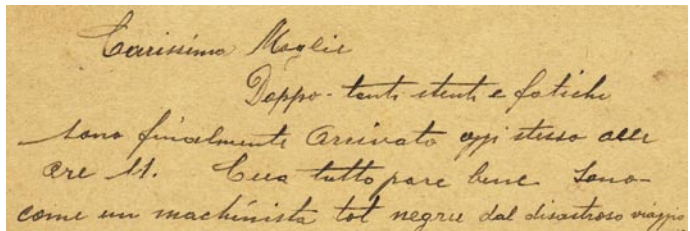 Carissima Moglie
Doppo - tanti stenti e fatiche
sono finalmente arrivato oggi stesso alle
ore 11. Cua tutto pare bene. Sono
come un machinista tot negru dal disastroso viaggio